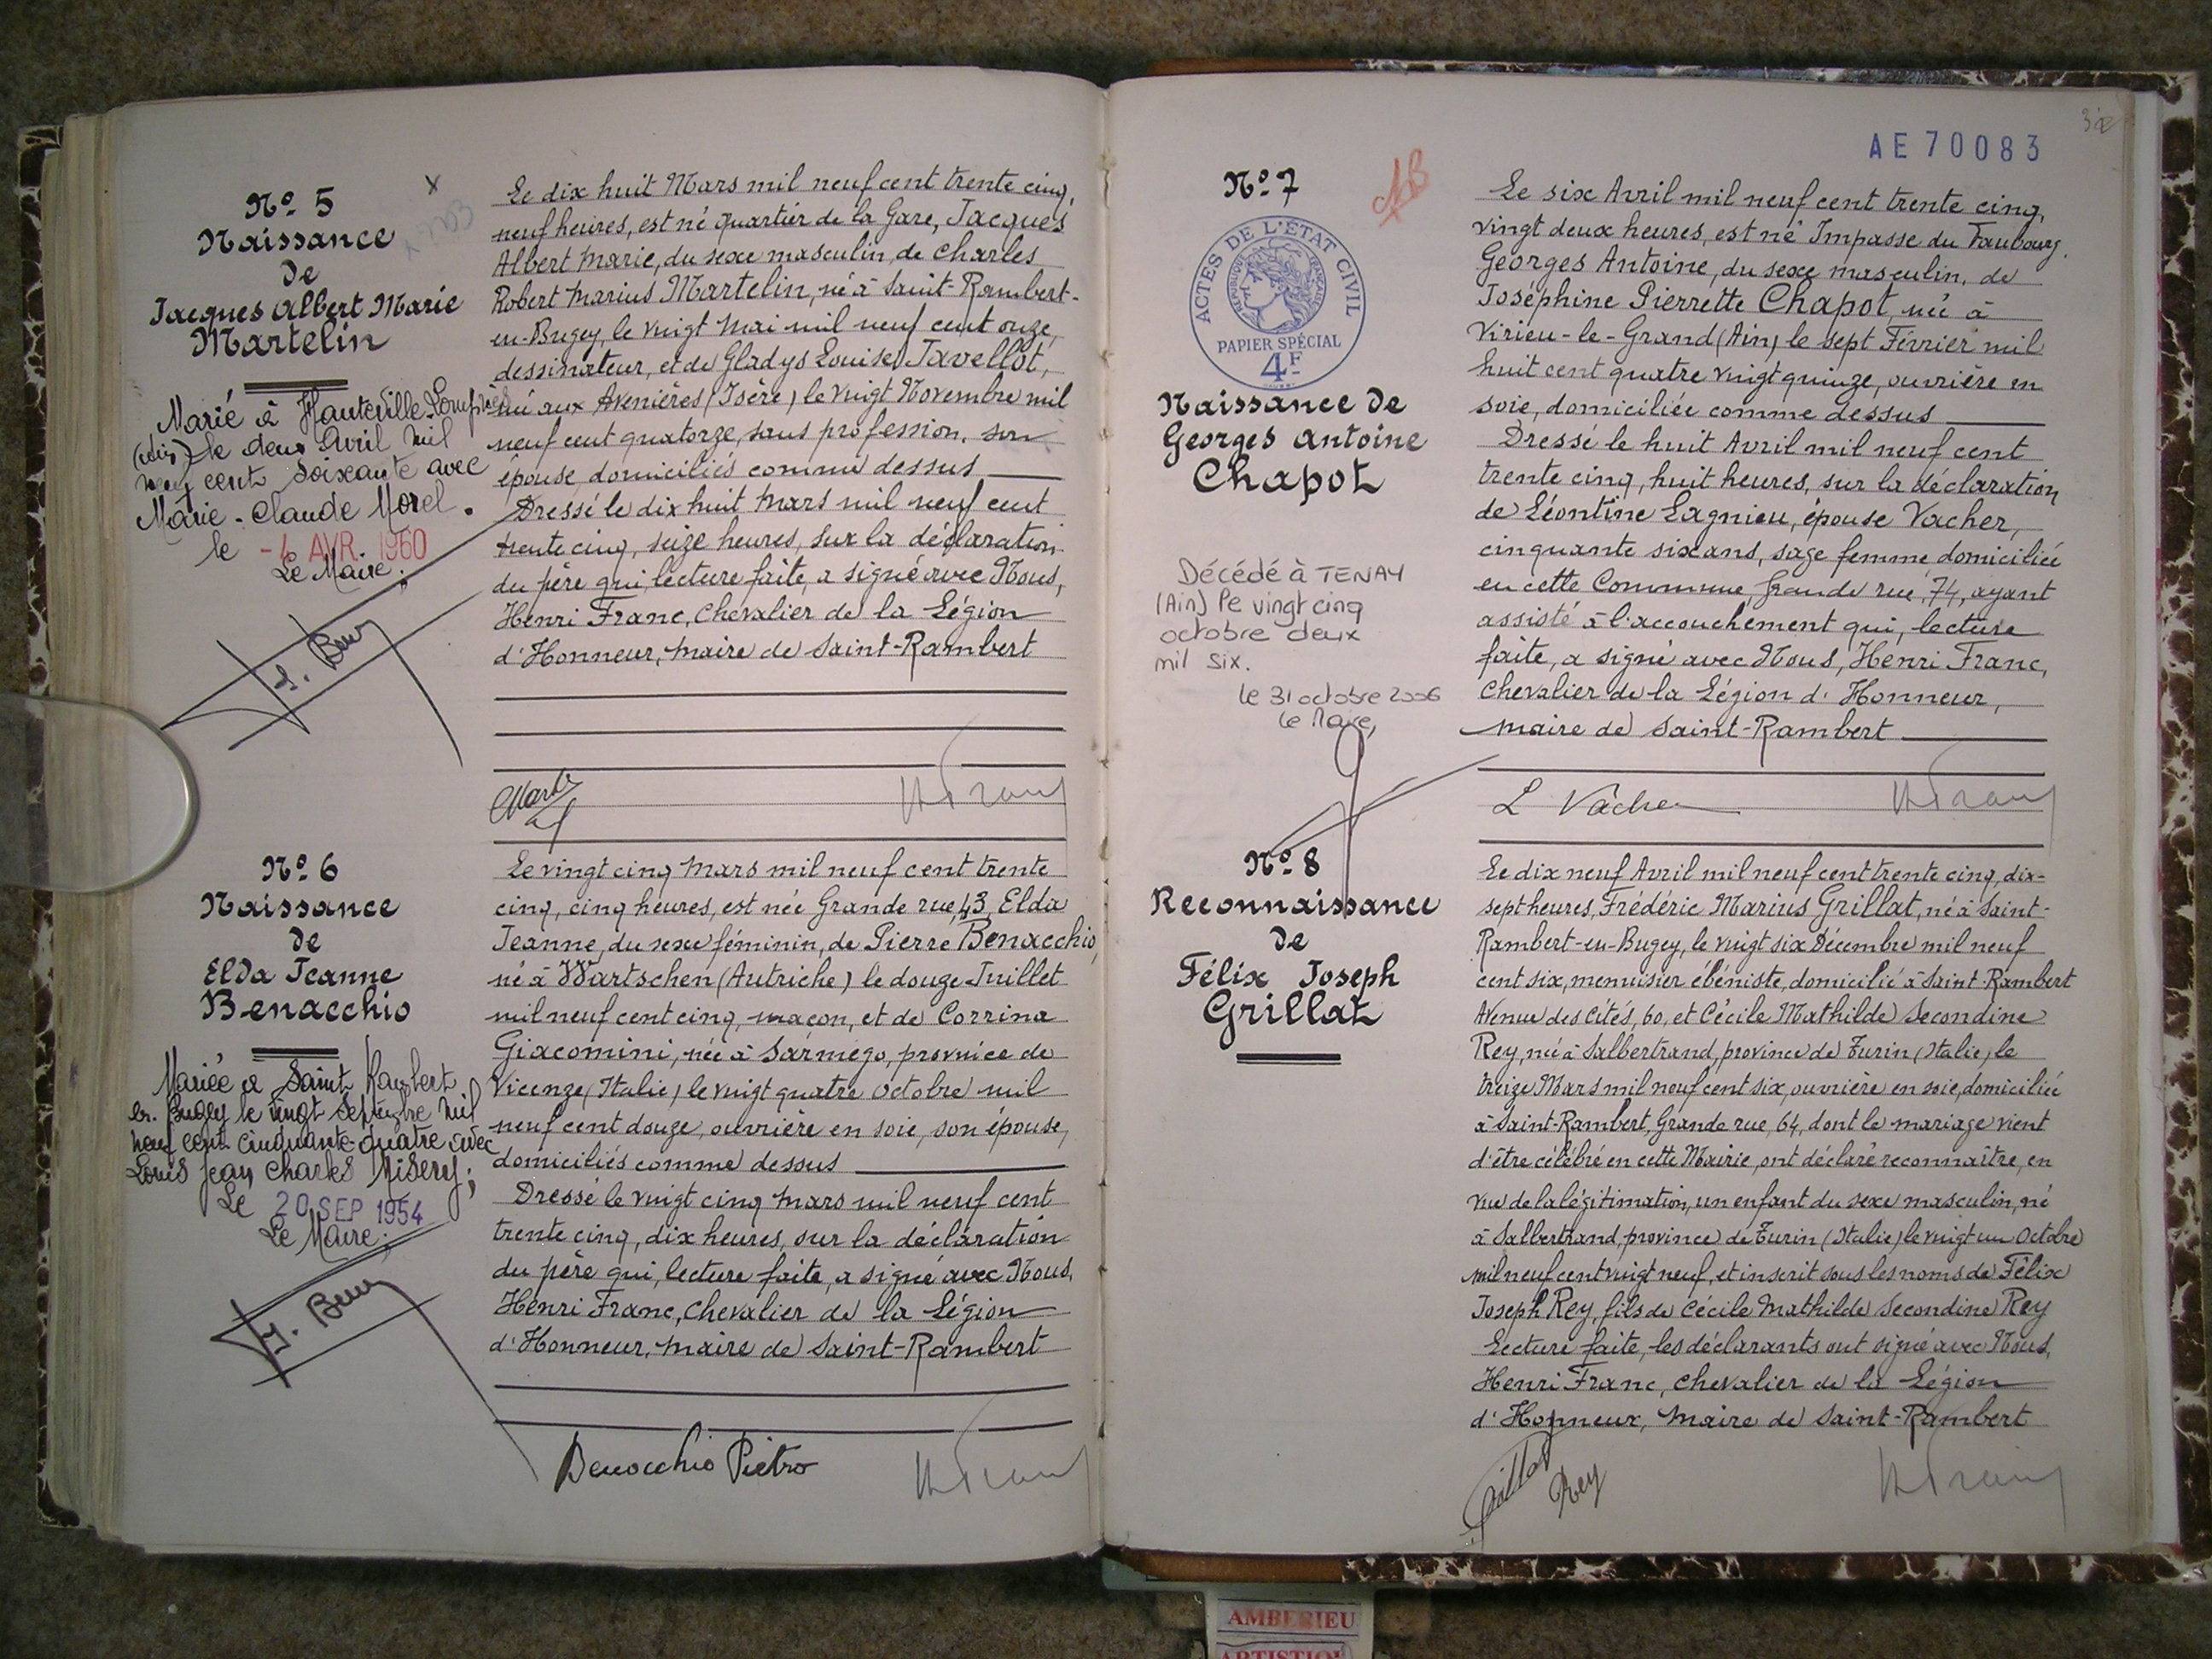 Nº 5
Naissance
de
Jacques Albert Marie
Martelin
Marié à Hauteville-Lompnès
(Ain) le deux Avril mil
neuf cent soixante avec
Marie-Claude Morel.
le -4 AVR. 1960
Le Maire:
Le dix huit Mars mil neuf cent trente cinq,
neuf heures, est né quartier de la Gare, Jacques
Albert Marie, du sexe masculin, de Charles
Robert Marius Martelin, né à Saint-Rambert-
en-Bugey, le vingt Mai mil neuf cent onze,
dessinateur, et de Gladys Louise Javellot,
née aux Avenières (Isère) le vingt Novembre mil
neuf cent quatorze, sans profession, son
épouse domiciliés comme dessus
Dressé le dix huit Mars mil neuf cent
trente cinq, seize heures, sur la déclaration
du père qui, lecture faite, a signé avec Nous,
Henri Franc, Chevalier de la Légion
d'Honneur, Maire de Saint-Rambert
Nº 6
Naissance
de
Elda Jeanne
Benacchio
Mariée à Saint Rambert
en Bugey le vingt Septembre mil
neuf cent cinquante-quatre avec
Louis Jean Charles Misery;
Le 20 SEP 1954
Le Maire:
Le vingt cinq Mars mil neuf cent trente
cinq, cinq heures, est née Grande rue, 43, Elda
Jeanne, du sexe féminin, de Pierre Benacchio,
né à Wartschen (Autriche) le douze Juillet
mil neuf cent cinq, maçon, et de Corrina
Giacomini, née à Sarmego, province de
Vicenze (Italie) le vingt quatre Octobre mil
neuf cent douze, ouvrière en soie, son épouse,
domiciliés comme dessus
Dressé le vingt cinq Mars mil neuf cent
trente cinq, dix heures, sur la déclaration
du père qui, lecture faite, a signé avec Nous,
Henri Franc, Chevalier de la Légion
d'Honneur, Maire de Saint-Rambert
Benacchio Pietro
AE 70083
Nº 7
ACTES DE L'ÉTAT CIVIL
RÉPUBLIQUE FRANÇAISE
PAPIER SPÉCIAL
4F
Naissance de
Georges Antoine
Chapot
Décédé à TENAY
(Ain) le vingt cinq
octobre deux
mil six.
le 31 octobre 2006
Le Maire,
Le six Avril mil neuf cent trente cinq,
vingt deux heures, est né Impasse du Faubourg,
Georges Antoine, du sexe masculin, de
Joséphine Pierrette Chapot, née à
Virieu-le-Grand (Ain) le sept Février mil
huit cent quatre vingt quinze, ouvrière en
soie, domiciliée comme dessus
Dressé le huit Avril mil neuf cent
trente cinq, huit heures, sur la déclaration
de Léontine Lagnieu, épouse Vacher,
cinquante six ans, sage femme, domiciliée
en cette Commune, Grande rue, 74, ayant
assisté à l'accouchement qui, lecture
faite, a signé avec Nous, Henri Franc,
Chevalier de la Légion d'Honneur,
Maire de Saint-Rambert
L Vacher
Nº 8
Reconnaissance
de
Félix Joseph
Grillat
Le dix neuf Avril mil neuf cent trente cinq, dix-
sept heures, Frédéric Marius Grillat, né à Saint-
Rambert-en-Bugey, le vingt six Décembre mil neuf
cent six, menuisier ébéniste, domicilié à Saint-Rambert
Avenue des Cités, 60, et Cécile Mathilde Secondine
Rey, née à Salbertrand, province de Turin (Italie) le
treize Mars mil neuf cent six, ouvrière en soie, domiciliée
à Saint-Rambert, Grande rue, 64, dont le mariage vient
d'être célébré en cette Mairie, ont déclaré reconnaître, en
vue de la légitimation, un enfant du sexe masculin, né
à Salbertrand, province de Turin (Italie) le vingt un Octobre
mil neuf cent vingt neuf, et inscrit sous les noms de Félix
Joseph Rey, fils de Cécile Mathilde Secondine Rey
Lecture faite, les déclarants ont signé avec Nous,
Henri Franc, Chevalier de la Légion
d'Honneur, Maire de Saint-Rambert
Grillat
Rey
AMBERIEU